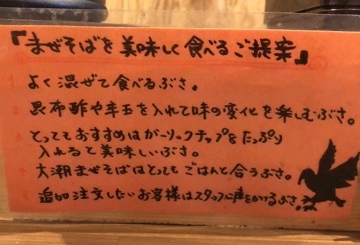 『まぜそばを美味しく食べるご提案』
1 よく混ぜて食べるぶさ。
2 昆布酢や辛玉を入れて味の変化を楽しむぶさ。
3 とってもおすすめはガーリックチップをたっぷり
入れると美味しいぶさ。
4 大潮まぜそばはとってもごはんと合うぶさ。
5 追加注文したいお客様はスタッフに声をかけるぶさ。